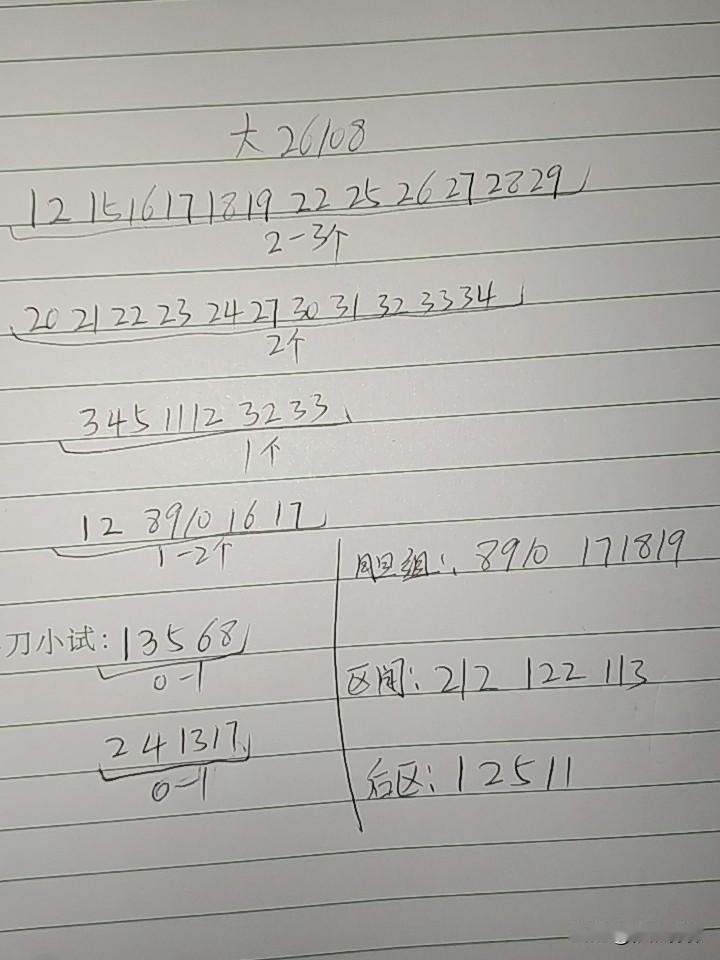 大 26108
12 15 16 17 18 19 22 25 26 27 28 29
2-3个
20 21 22 23 24 27 30 31 32 33 34
2个
3 4 5 11 12 32 33
1个
1 2 8 9 10 16 17
1-2个
胆组: 8 9 10 17 18 19
刀小试: 1 3 5 6 8
0-1
区间: 212 122 113
2 4 13 17
0-1
后区: 1 2 5 11